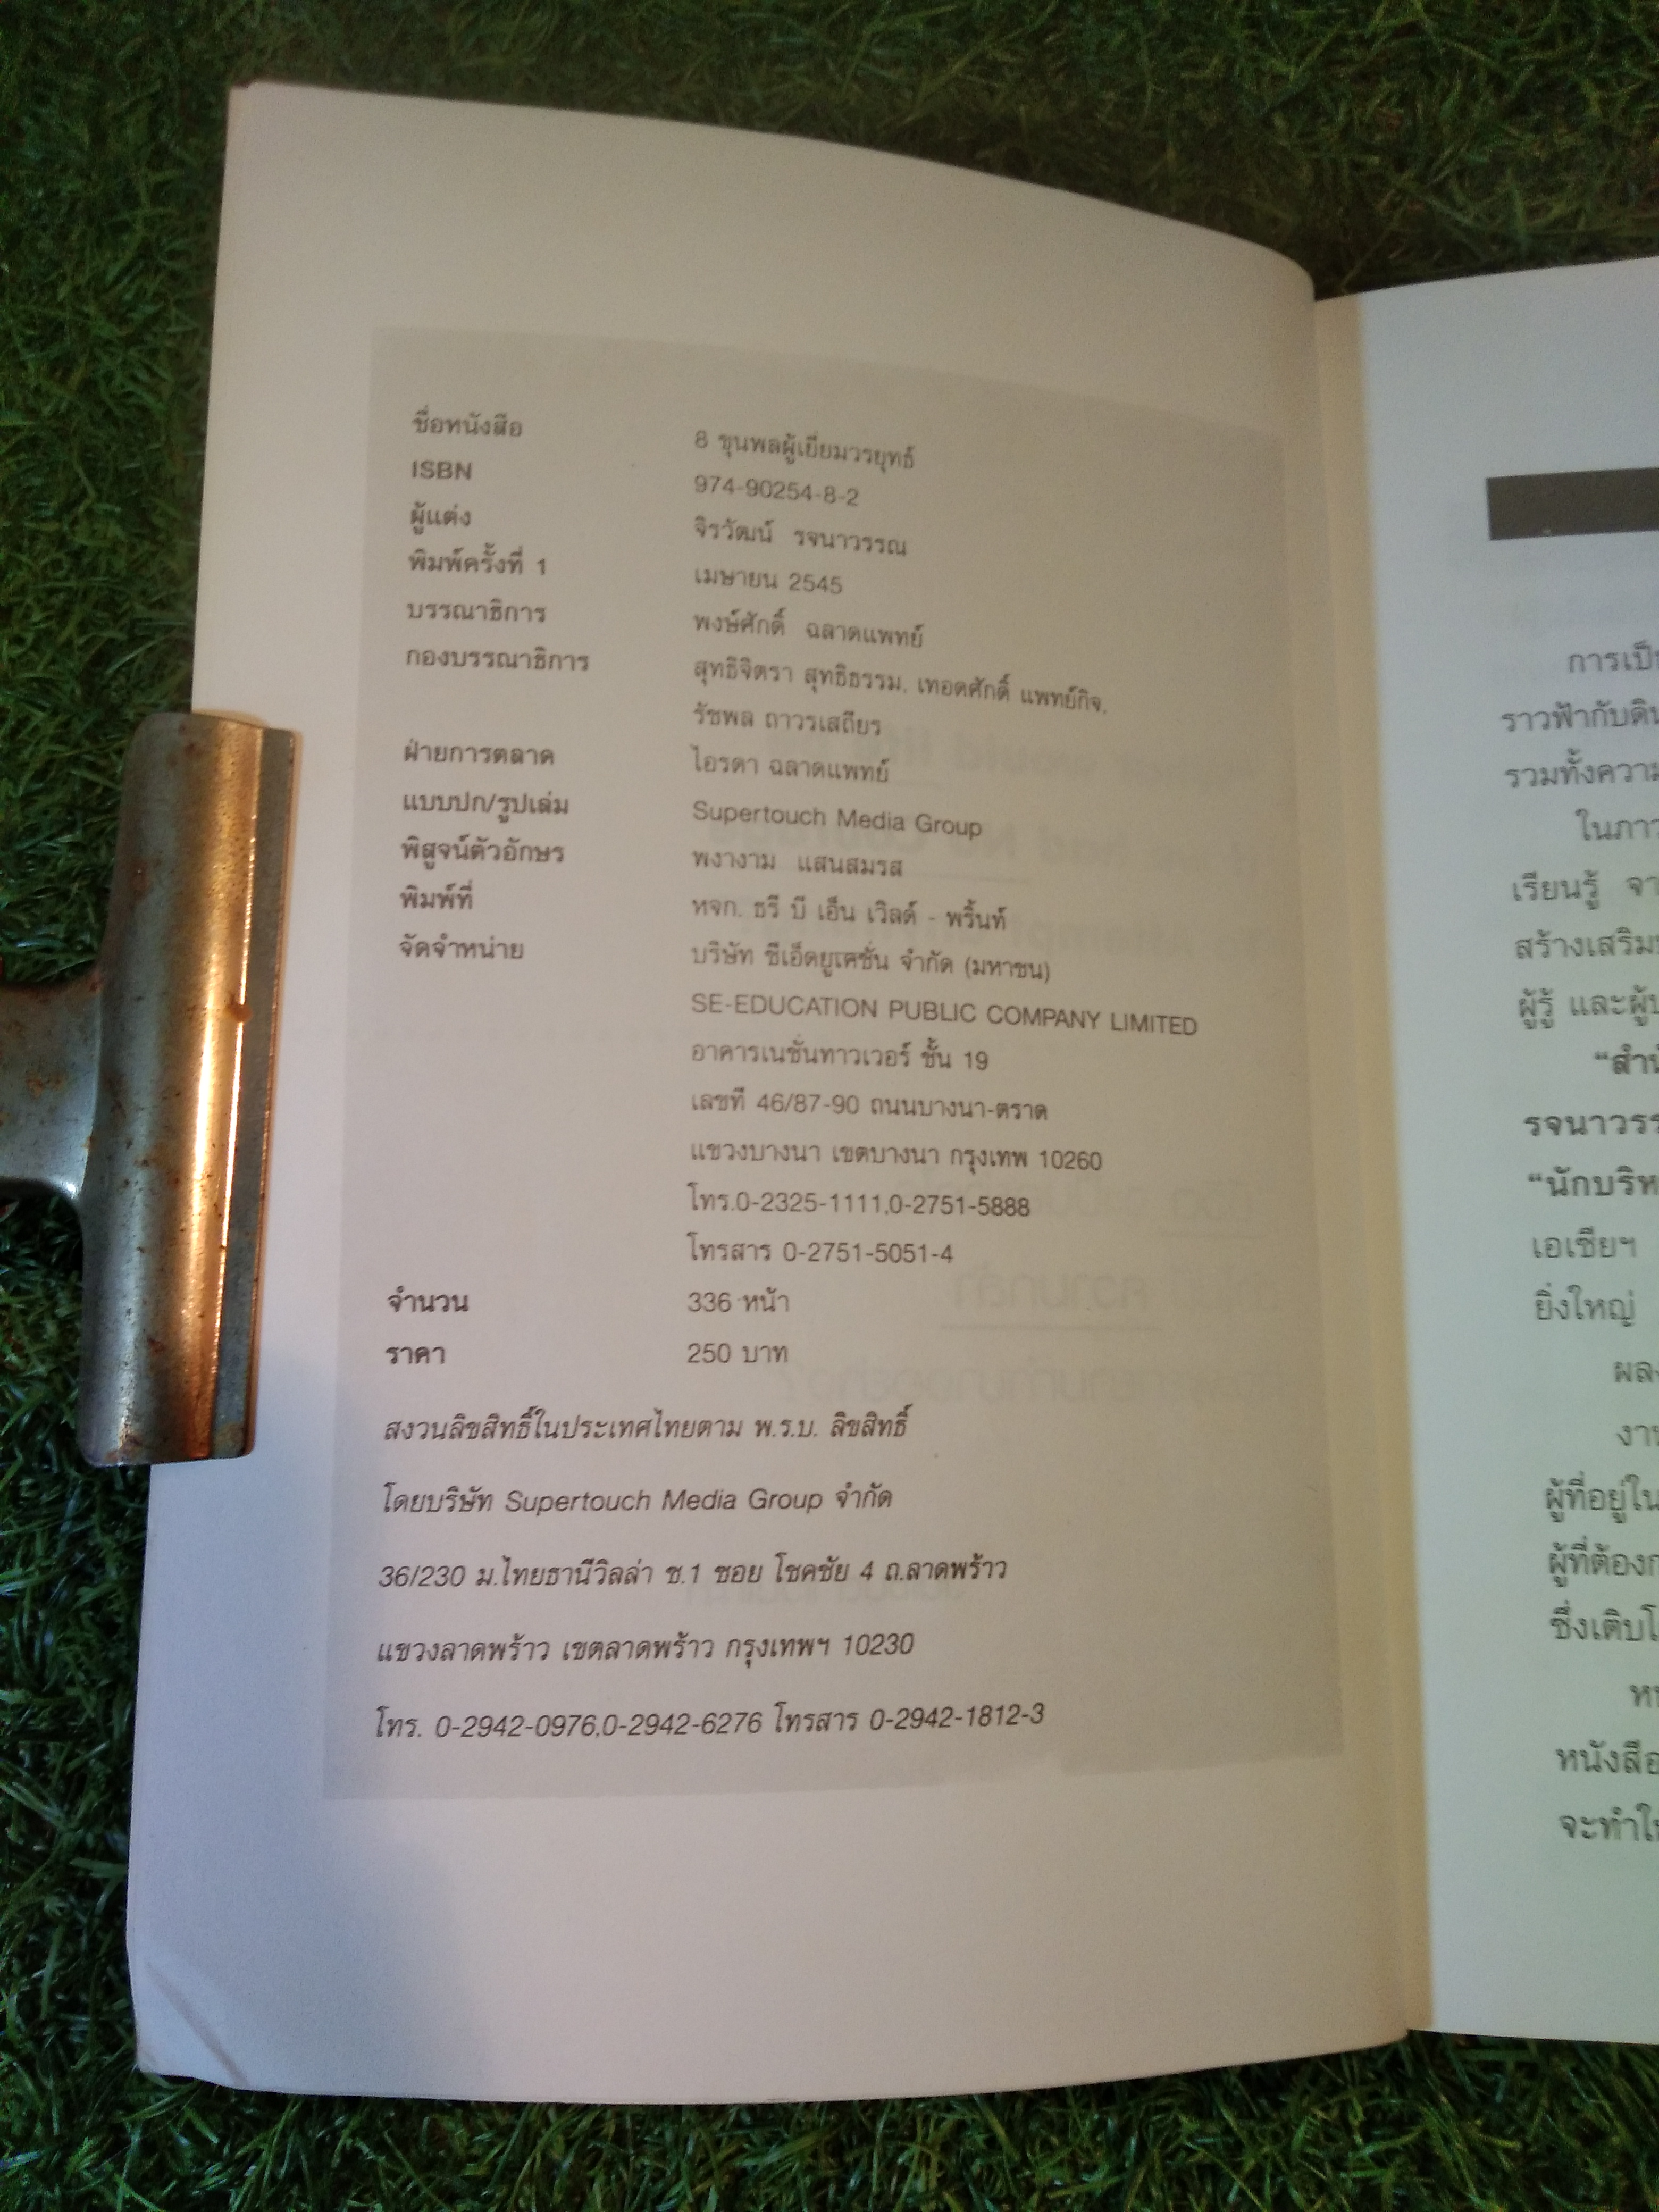 ชื่อหนังสือ 8 ขุนพลผู้เยี่ยมวรยุทธ์
ISBN 974-90254-8-2
ผู้แต่ง จิรวัฒน์ รจนาวรรณ
พิมพ์ครั้งที่ 1 เมษายน 2545
บรรณาธิการ พงษ์ศักดิ์ ฉลาดแพทย์
กองบรรณาธิการ สุทธิจิตรา สุทธิธรรม, เทอดศักดิ์ แพทย์กิจ,
รัชพล ถาวรเสถียร
ฝ่ายการตลาด ไอรดา ฉลาดแพทย์
แบบปก/รูปเล่ม Supertouch Media Group
พิสูจน์ตัวอักษร พงางาม แสนสมรส
พิมพ์ที่ หจก. ธรี บี เอ็น เวิลด์ - พริ้นท์
จัดจำหน่าย บริษัท ซีเอ็ดยูเคชั่น จำกัด (มหาชน)
SE-EDUCATION PUBLIC COMPANY LIMITED
อาคารเนชั่นทาวเวอร์ ชั้น 19
เลขที่ 46/87-90 ถนนบางนา-ตราด
แขวงบางนา เขตบางนา กรุงเทพ 10260
โทร.0-2325-1111,0-2751-5888
โทรสาร 0-2751-5051-4
จำนวน 336 หน้า
ราคา 250 บาท
สงวนลิขสิทธิ์ในประเทศไทยตาม พ.ร.บ. ลิขสิทธิ์
โดยบริษัท Supertouch Media Group จำกัด
36/230 ม.ไทยธานีวิลล่า ซ.1 ซอย โชคชัย 4 ถ.ลาดพร้าว
แขวงลาดพร้าว เขตลาดพร้าว กรุงเทพฯ 10230
โทร. 0-2942-0976,0-2942-6276 โทรสาร 0-2942-1812-3
การเป็
ราวฟ้ากับดิน
รวมทั้งความ
ในภาว
เรียนรู้ จา
สร้างเสริม
ผู้รู้ และผู้
“สำนั
รจนาวรร
“นักบริห
เอเซียฯ
ยิ่งใหญ่
ผลง
งาน
ผู้ที่อยู่ใน
ผู้ที่ต้องก
ซึ่งเติบโ
ห
หนังสือ
จะทำให